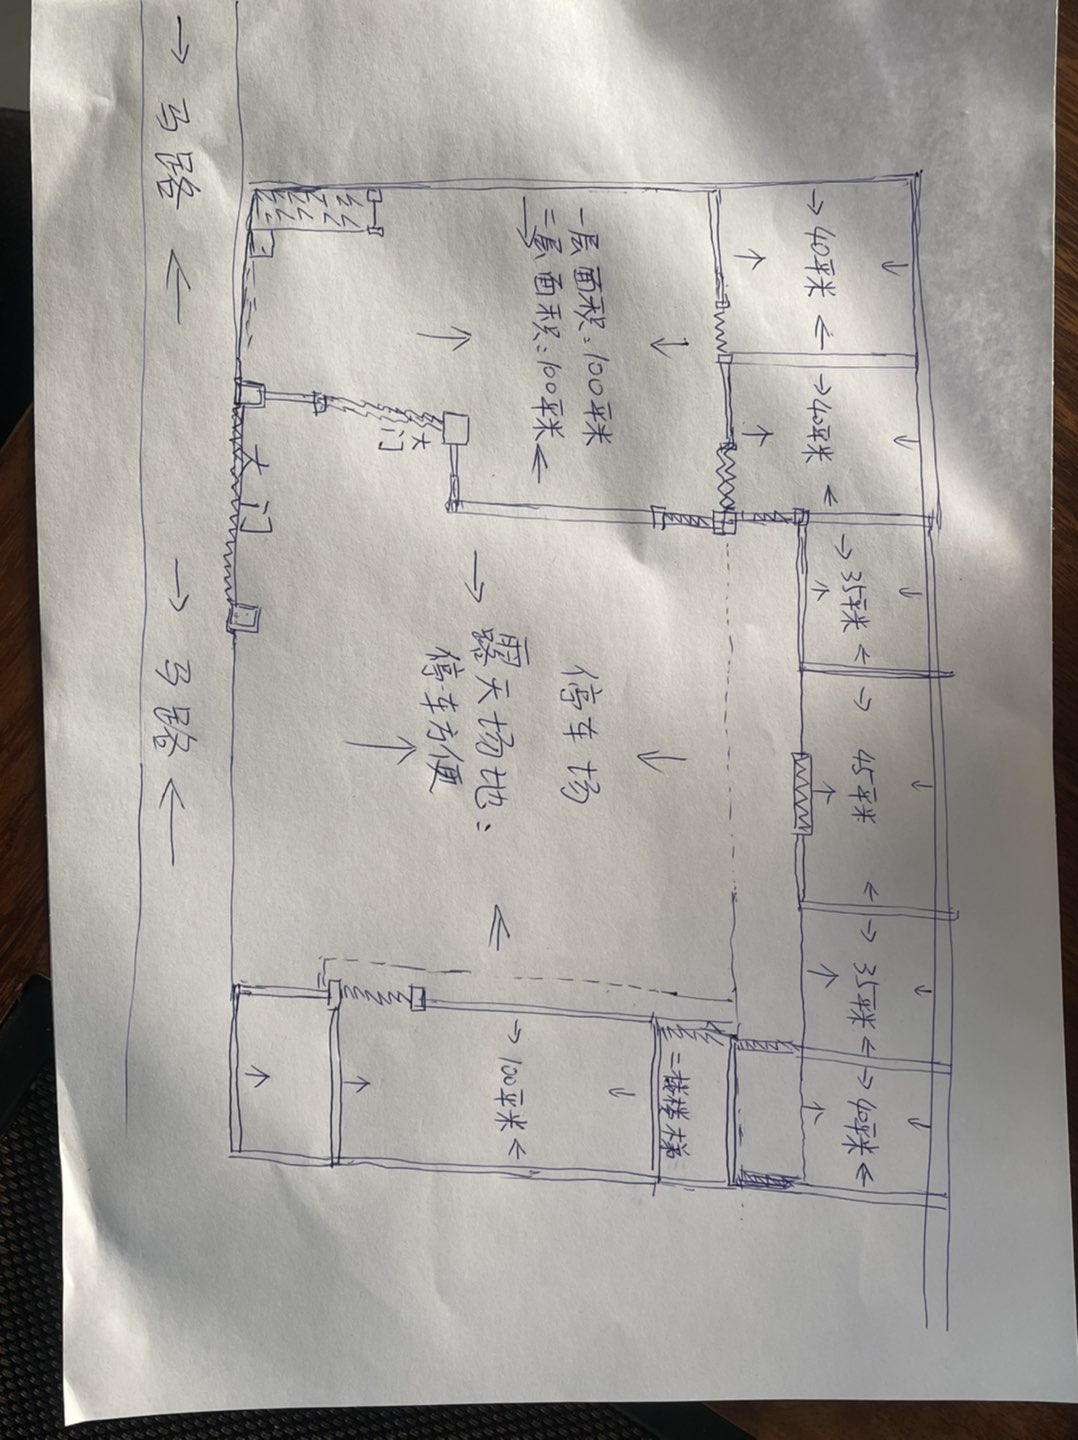 40平米
40平米
35平米
45平米
35平米
40平米
二楼楼梯
一层面积:100平米
二层面积:100平米
停车场
露天场地:
停车方便
100平米
大门
大门
马路
马路